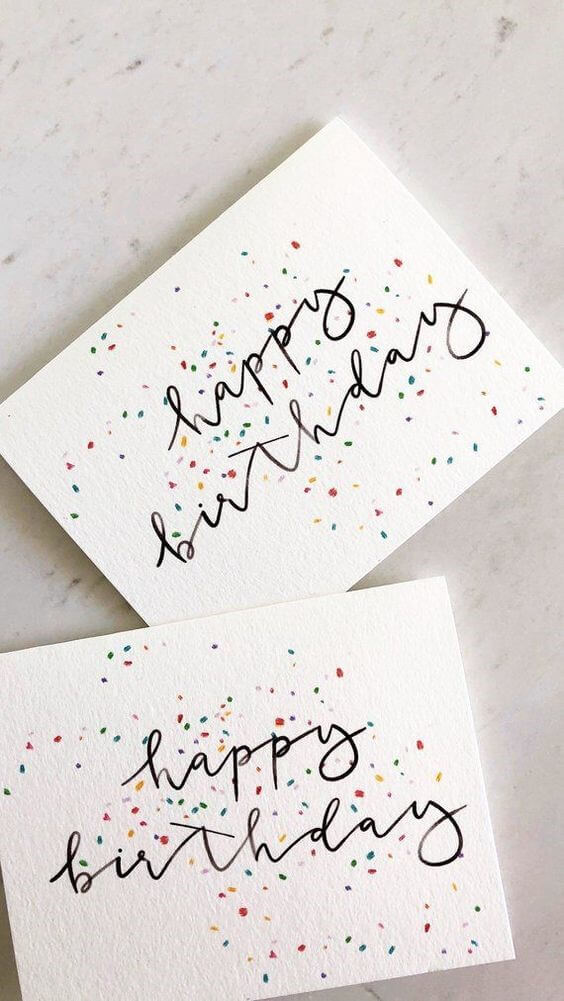 happy
birthday
happy
birthday